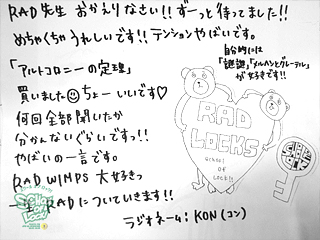 RAD先生 おかえりなさい!! ずーっと待ってました!!
めちゃくちゃうれしいです!! テンションやばいです。
「アルトコロニーの定理」
買いました ちょーいいです♡
何回全部聞いたか
分かんないぐらいですっ!!
やばいの一言です。
RADWIMPS 大好きっ
一生 RADについていきます!!
ラジオネーム:KON(コン)
自分的には
「謎謎」「メルヘンとグレーテル」
が好きです!!
RAD
LOCKS
School
of
Lock!!
School
of Lock!